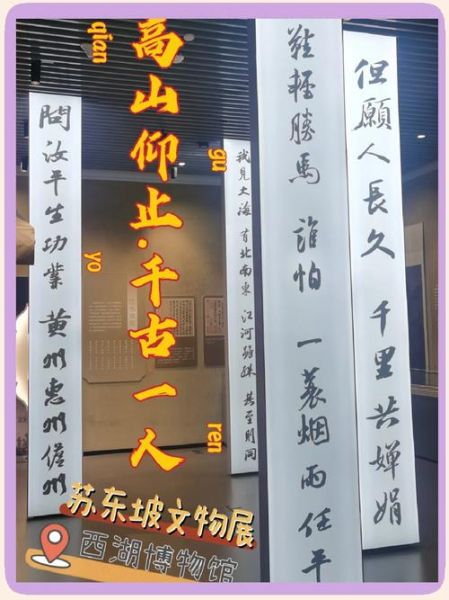 高山仰止·千古一人
qian
gu
yo
ren
但願人長久 千里共嬋娟
鞋輕勝馬 誰怕 一蓑烟雨任平
我見大海 有北南東 江河雖殊 其至則同
問汝平生功業 黄州惠州儋州
苏东坡文物展
西湖博物馆